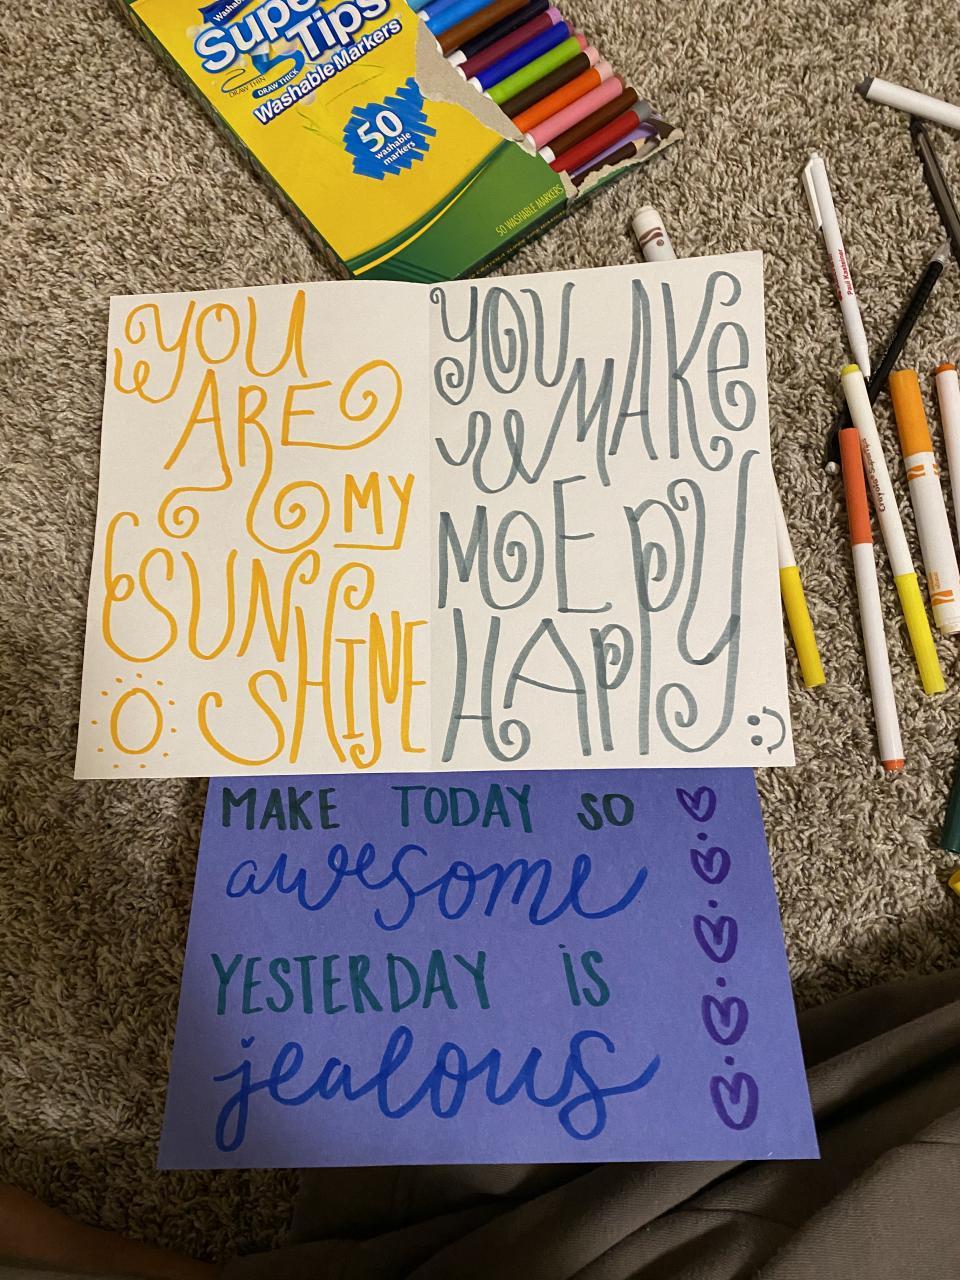 Washable
Super
Tips
DRAW THIN
DRAW THICK
Washable Markers
50
washable
markers
50 WASHABLE MARKERS
YOU
ARE
MY
SUN
SHINE
YOU
MAKE
ME
HAPPY
MAKE TODAY SO
awesome
YESTERDAY IS
jealous